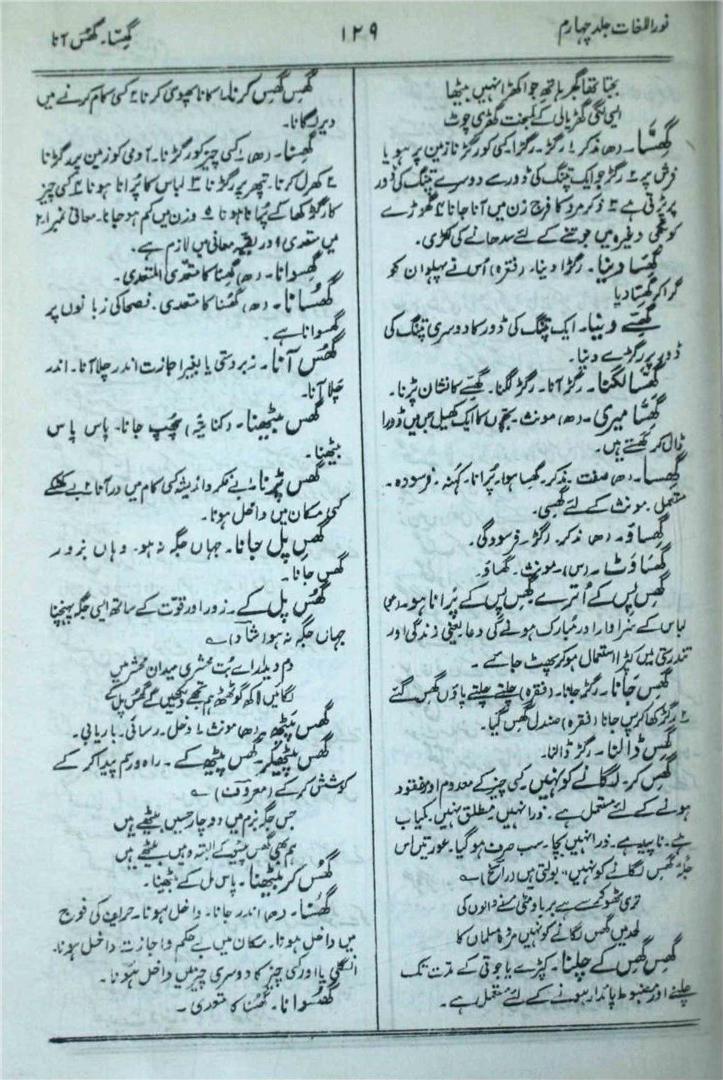 نوراللغات جلد چہارم
۱۲۹
گھِسّا۔ گھُس آنا
بجتا تھا گجر ہاتھ جو اکھڑا نہیں بیٹھا
ایسی لگی گھڑیالی کے کمبخت گھڑی چوٹ
گھِسّا۔ (ھ) مذکر ۱ رگڑ۔ رگڑا کسی کو رگڑنا زمین پر ہو یا
فرش پر ۲ رگڑ جو ایک پتنگ کی ڈور سے دوسرے پتنگ کی ڈور
پر پڑتی ہے ۳ ذکر مرد کا فرج زن میں آنا جانا ۴ گھوڑے
کو بگھی وغیرہ میں جوتنے کے لئے سدھانے کی لکڑی۔
گھِسّا دینا۔ رگڑا دینا۔ (فقرہ) اُس نے پہلوان کو
گرا کر گھِسّا دیا
گھِسّے دینا۔ ایک پتنگ کی ڈور کا دوسری پتنگ کی
ڈور پر رگڑے دینا۔
گھِسّا لگنا۔ رگڑ آنا۔ رگڑ لگنا۔ گھِسّے کا نشان پڑنا۔
گھِسّا میری۔ (ھ) مونث۔ بچّوں کا ایک کھیل جس میں ڈورا
ڈال کر گھِستے ہیں۔
گھِسا۔ (ھ) صفت۔ مذکر۔ گھِسا ہوا۔ پُرانا۔ کہنہ۔ فرسودہ۔
مستعمل۔ مونث کے لئے گھِسی۔
گھِساؤ۔ (ھ) مذکر۔ رگڑ۔ فرسودگی۔
گھِساوَٹ۔ (س)۔ مونث۔ گھِساؤ۔
گھِس پِس کے اُترے۔ گھِس پِس کے پُرانا ہو۔ (عو)
لباس کے سزاوار اور مُبارک ہونے کی دعا یعنی زندگی اور
تندرستی میں کپڑا استعمال ہو کر پھٹ جائے۔
گھِس جانا۔ رگڑ جانا۔ (فقرہ) چلتے چلتے پاؤں گھِس گئے
۲ رگڑ کھا کر پس جانا (فقرہ) صندل گھِس گیا۔
گھِس ڈالنا۔ رگڑ ڈالنا۔
گھِس کر لگانے کو نہیں۔ کسی چیز کے معدوم اور مفقود
ہونے کے لئے مستعمل ہے۔ ذرا نہیں مطلق نہیں۔ کمیاب
ہے۔ ناپید ہے۔ ذرا نہیں بچا۔ سب صرف ہو گیا۔ عورتیں اس
جگہ گھِس لگانے کو نہیں، بولتی ہیں (راسخ)
تری ٹھوکر سے ہے برباد مٹی مرنے والوں کی
لحد میں گھِس لگانے کو نہیں مردہ مسلماں کا
گھِس گھِس کے چلنا۔ کپڑے یا جوتی کے مدت تک
چلنے اور مضبوط پائدار ہونے کے لئے مستعمل ہے۔
گھِس گھِس کرنا۔ ۱ کانا پھوسی کرنا ۲ کسی کام کرنے میں
دیر لگانا۔
گھِسنا۔ (ھ) ۱ کسی چیز کو رگڑنا۔ آدمی کو زمین پر رگڑنا
۲ کھرل کرنا۔ پتھر پر رگڑنا ۳ لباس کا پُرانا ہونا ۴ کسی چیز
کا رگڑ کھا کے پُرانا ہونا ۵ وزن میں کم ہو جانا۔ معانی نمبر ۲،۱
میں متعدی اور بقیہ معانی میں لازم ہے۔
گھِسوانا۔ (ھ) گھِسنا کا متعدی المتعدی۔
گھُسانا۔ (ھ) گھُسنا کا متعدی۔ فصحا کی زبانوں پر
گھسوانا ہے۔
گھُس آنا۔ زبردستی یا بغیر اجازت اندر چلا آنا۔ اندر
چلا آنا۔
گھُس بیٹھنا۔ (کنایۃً) چھُپ جانا۔ پاس پاس
بیٹھنا۔
گھُس پڑنا۔ ۱ بے فکر و اندیشہ کسی کام میں در آنا ۲ بے کھٹکے
کسی مکان میں داخل ہونا۔
گھُس پل جانا۔ جہاں جگہ نہ ہو۔ وہاں بزور
گھس جانا۔
گھُس پل کے۔ زور اور قوت کے ساتھ ایسی جگہ پہنچنا
جہاں جگہ نہ ہو (شاد)
دم دیدار اے بُت محشری میدان محشر میں
لگائیں لاکھ گو ٹھٹھ ہم تجھے دیکھیں گے گھُس پل کے
گھُس پیٹھ۔ (ھ) مونث ۱ دخل۔ رسائی۔ باریابی۔
گھُس پیٹھ کر۔ گھُس پیٹھ کے۔ راہ و رسم پیدا کر کے
کوشش کر کے (معروف)
جس جگہ بزم میں دو چار حسیں بیٹھے ہیں
ہم بھی گھُس پیٹھ کے البتہ وہیں بیٹھے ہیں
گھُس کر بیٹھنا۔ پاس مل کے بیٹھنا۔
گھُسنا۔ (ھ) اندر جانا۔ داخل ہونا۔ حریف کی فوج
میں داخل ہونا۔ مکان میں بے حکم و اجازت داخل ہونا۔
انگلی یا اور کسی چیز کا دوسری چیز میں داخل ہونا۔
گھُسوانا۔ گھُسنا کا متعدی۔